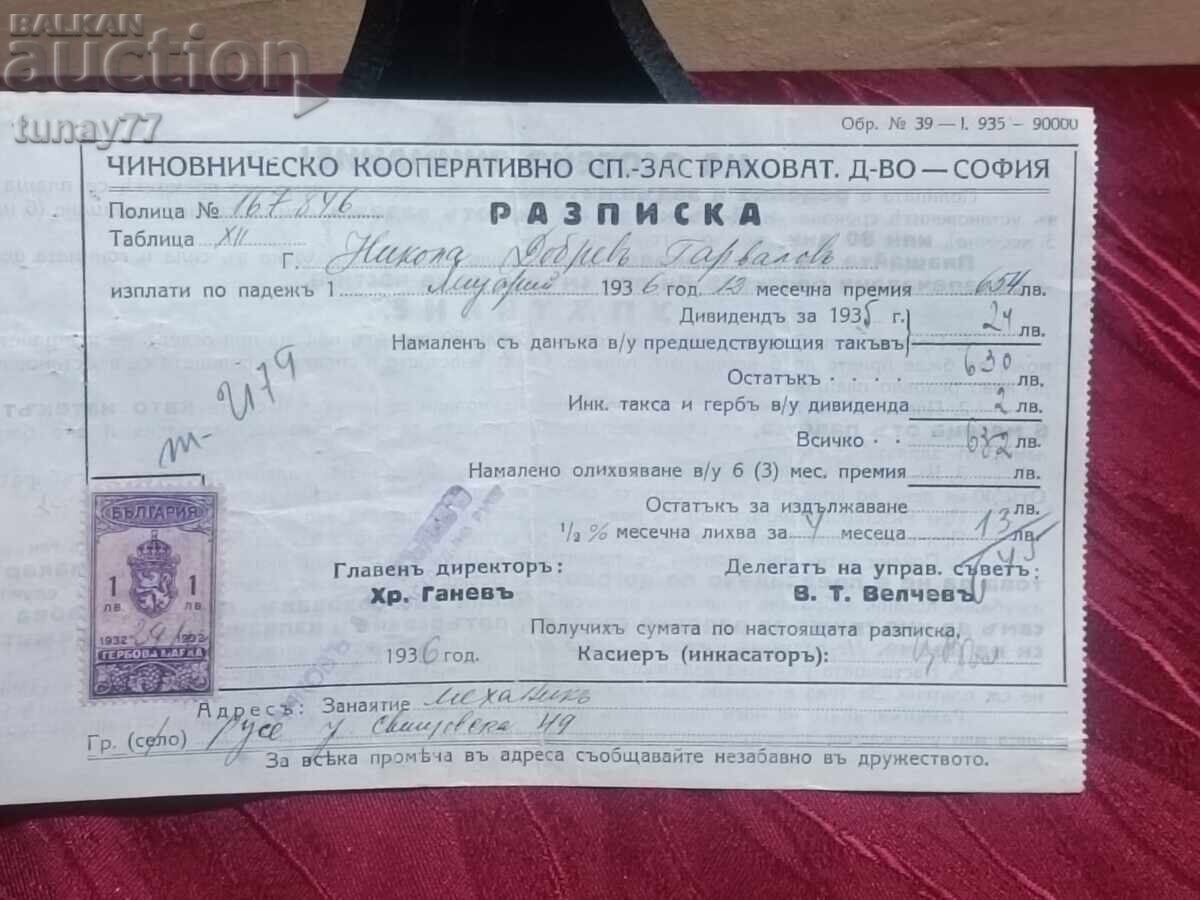 BALKAN
auction
tunay77
Обр. № 39 — I. 935 – 90000
ЧИНОВНИЧЕСКО КООПЕРАТИВНО СП.-ЗАСТРАХОВАТ. Д-ВО — СОФИЯ
Полица № 167846 РАЗПИСКА
Таблица XII г. Никола Добревъ Гарваловъ
изплати по падежъ 1 1936 год. 12 месечна премия 654 лв.
Дивидендъ за 1935 г. 24 лв.
Намаленъ съ данъка в/у предшедствующия такъвъ
Остатъкъ 630 лв.
Инк. такса и гербъ в/у дивидента 2 лв.
Всичко 632 лв.
Намалено олихвяване в/у 6 (3) мес. премия лв.
Остатъкъ за издължаване лв.
1/2 % месечна лихва за 4 месеца 13 лв.
Главенъ директоръ: Делегатъ на управ. съветъ:
Хр. Ганевъ В. Т. Велчевъ
Получихъ сумата по настоящата разписка,
1936 год. Касиеръ (инкасаторъ):
БЪЛГАРИЯ
1 1
лв. лв.
1932 1932
ГЕРБОВА МАРКА
Адресъ: Занаятие механикъ
Гр. (село) Русе у. Свищовска 49
За всѣка промѣна въ адреса съобщавайте незабавно въ дружеството.